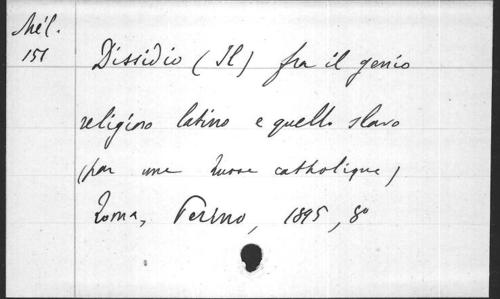 Mél.
151
Dissidio (Il) fra il genio
religioso latino e quello slavo
(par une russe catholique)
Roma, Perino, 1895, 8°